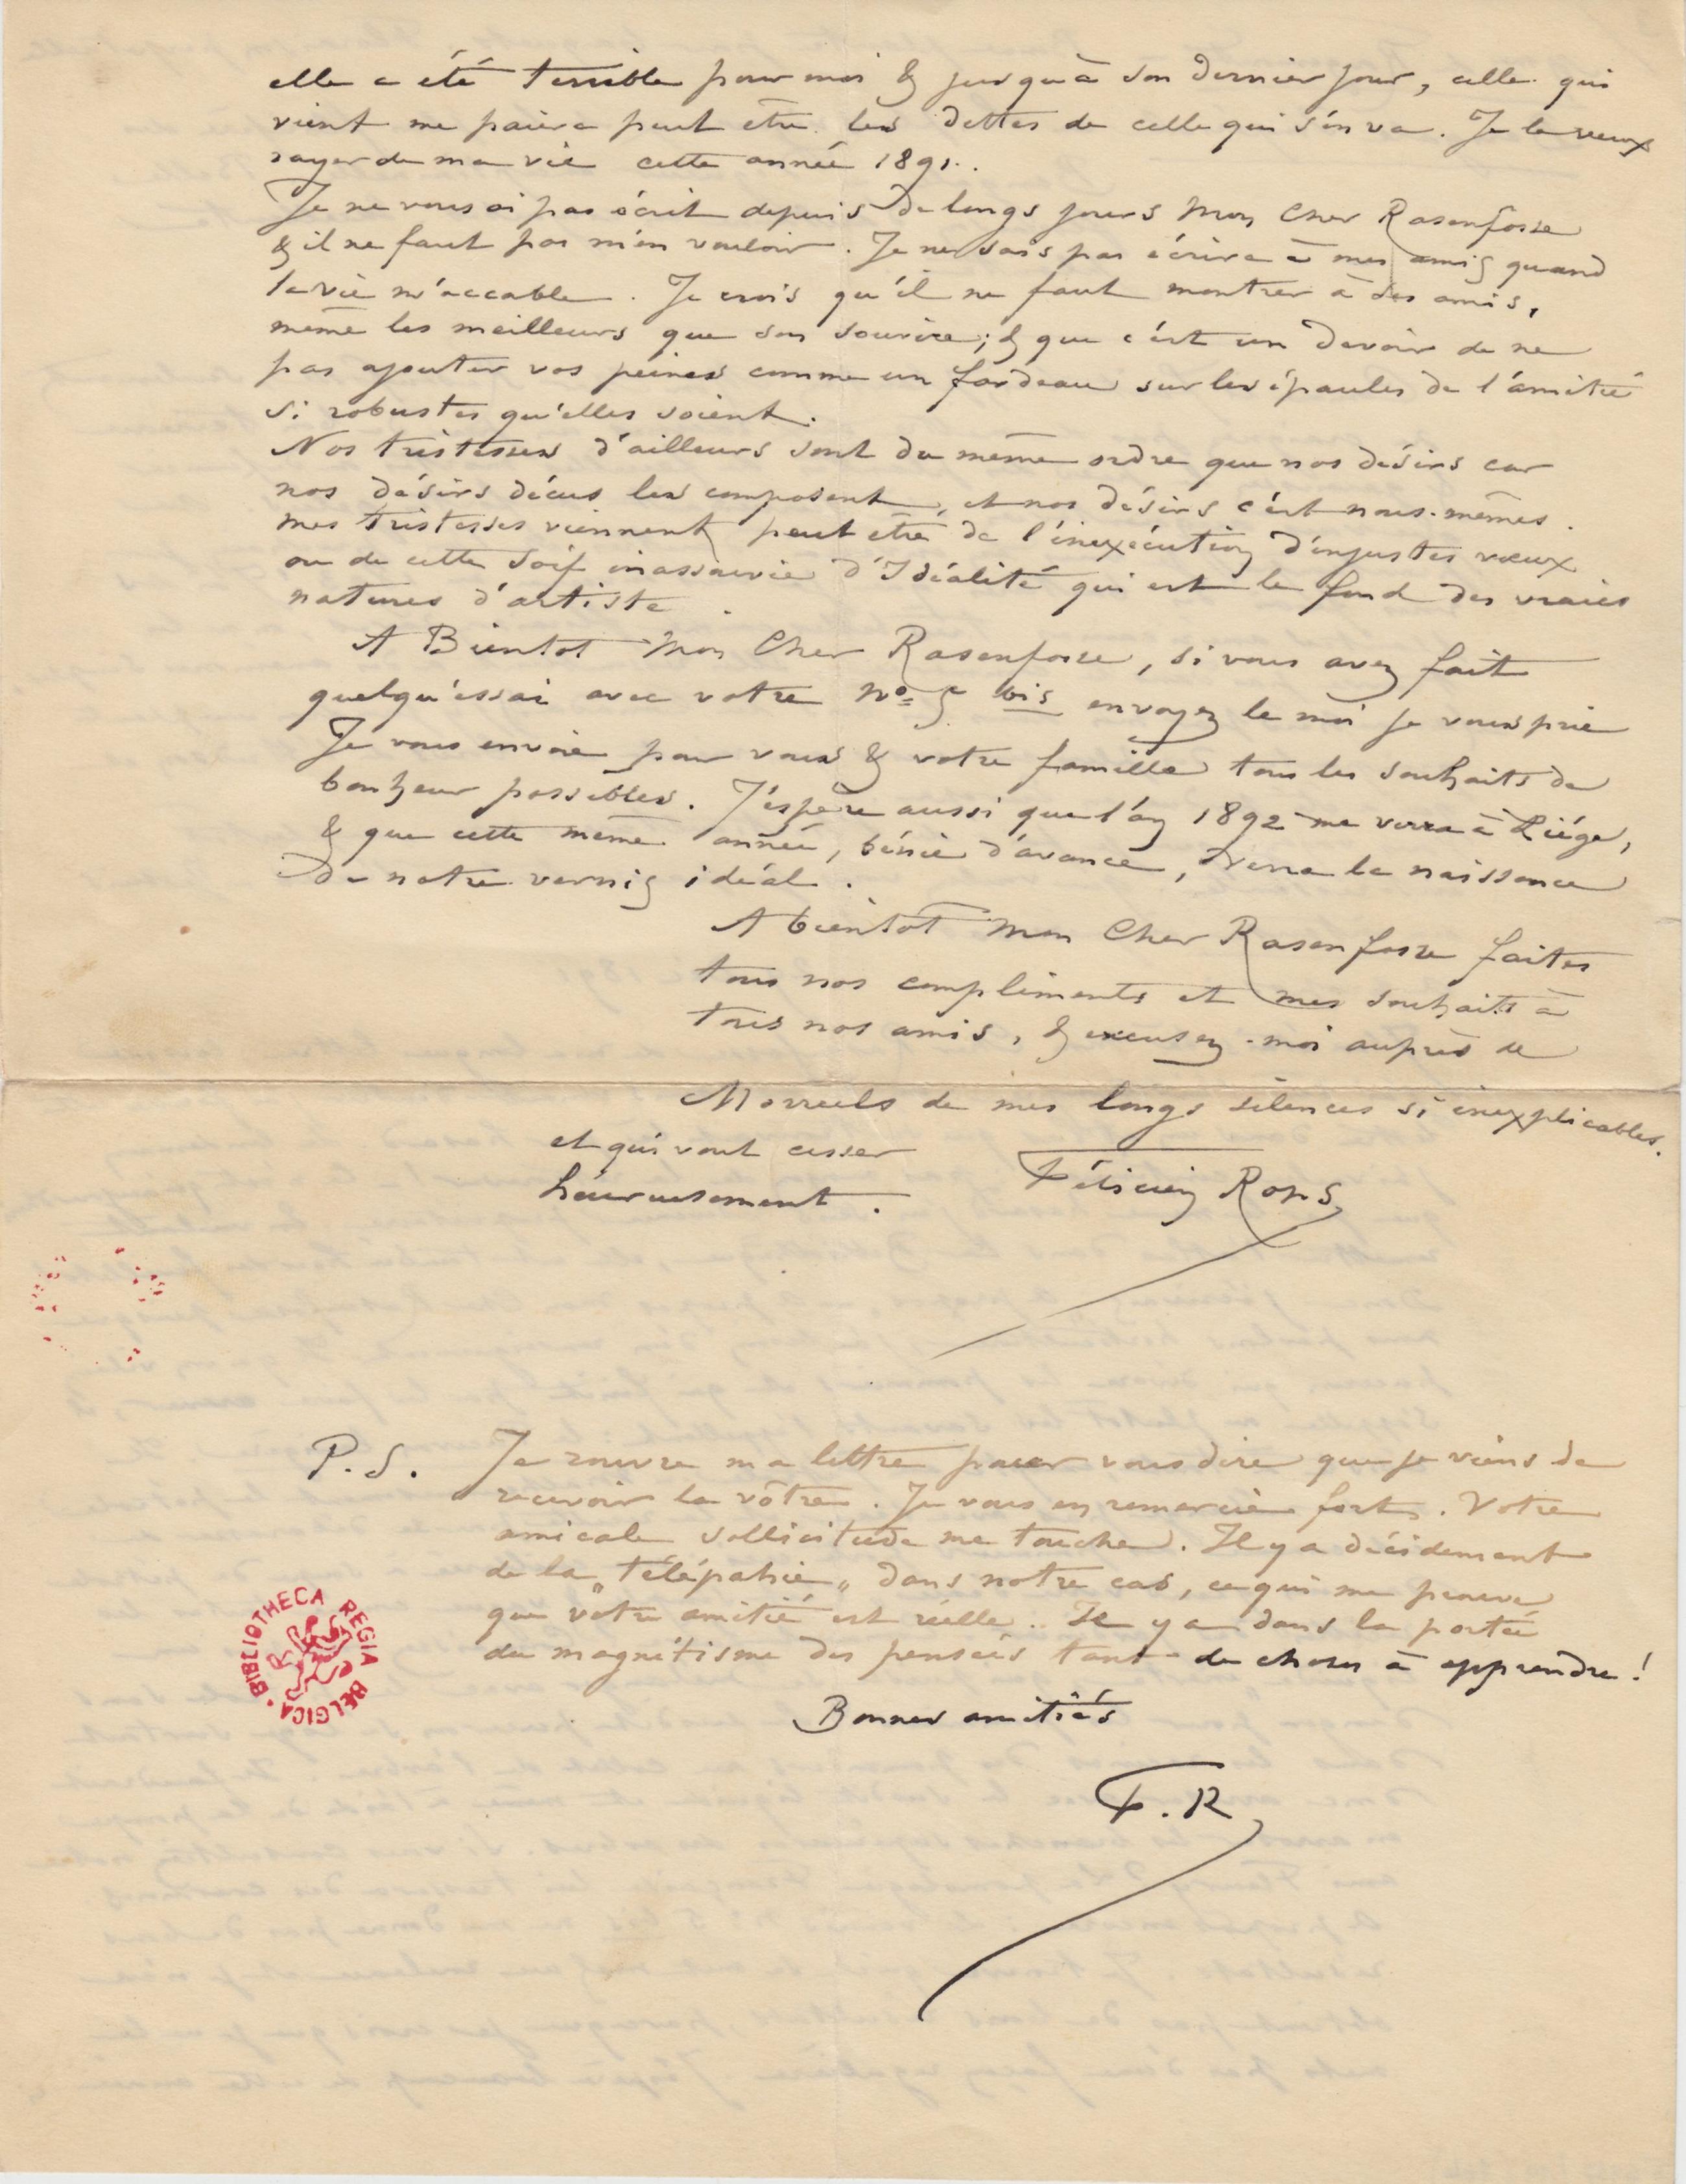 elle a été terrible pour moi & jusqu'à son dernier jour, celle qui
vient me paiera peut être les dettes de celle qui s'en va. Je la veux
rayer de ma vie cette année 1891.
Je ne vous ai pas écrit depuis de longs jours Mon Cher Rassenfosse
& il ne faut pas m'en vouloir. Je ne sais pas écrire à mes amis quand
la vie m'accable. Je crois qu'il ne faut montrer à ses amis,
même les meilleurs que son sourire; & que c'est un devoir de ne
pas ajouter vos peines comme un fardeau sur les épaules de l'amitié
si robustes qu'elles soient.
Nos tristesses d'ailleurs sont du même ordre que nos désirs car
nos désirs déçus les composent, et nos désirs c'est nous-mêmes.
mes tristesses viennent peut être de l'inexécution d'injustes vœux
ou de cette soif inassouvie d'Idéalité qui est le fond des vraies
natures d'artiste.
A Bientot Mon Cher Rassenfosse, si vous avez fait
quelqu'essai avec votre No 5 bis envoyez le moi je vous prie
Je vous envoie pour vous & votre famille tous les souhaits de
bonheur possibles. J'espère aussi que l'an 1892 me verra à Liége,
& que cette même année, bénie d'avance, verra la naissance
de notre vernis idéal.
A bientôt Mon Cher Rassenfosse faites
tous nos compliments et mes souhaits à
tous nos amis, & excusez-moi auprès de
de mes longs silences si inexplicables.
et qui vont cesser
heureusement.
Félicien Rops
P.S. Je rouvre ma lettre pour vous dire que je viens de
recevoir la vôtre. Je vous en remercie fort. Votre
amicale sollicitude me touche. Il y a décidement
de la „télépahie„ dans notre cas, ce qui me prouve
que votre amitié est réelle. Il y a dans la portée
du magnétisme des pensées tant de choses à apprendre!
Bonnes amitiés
F.R
BIBLIOTHECA REGIA BELGICA